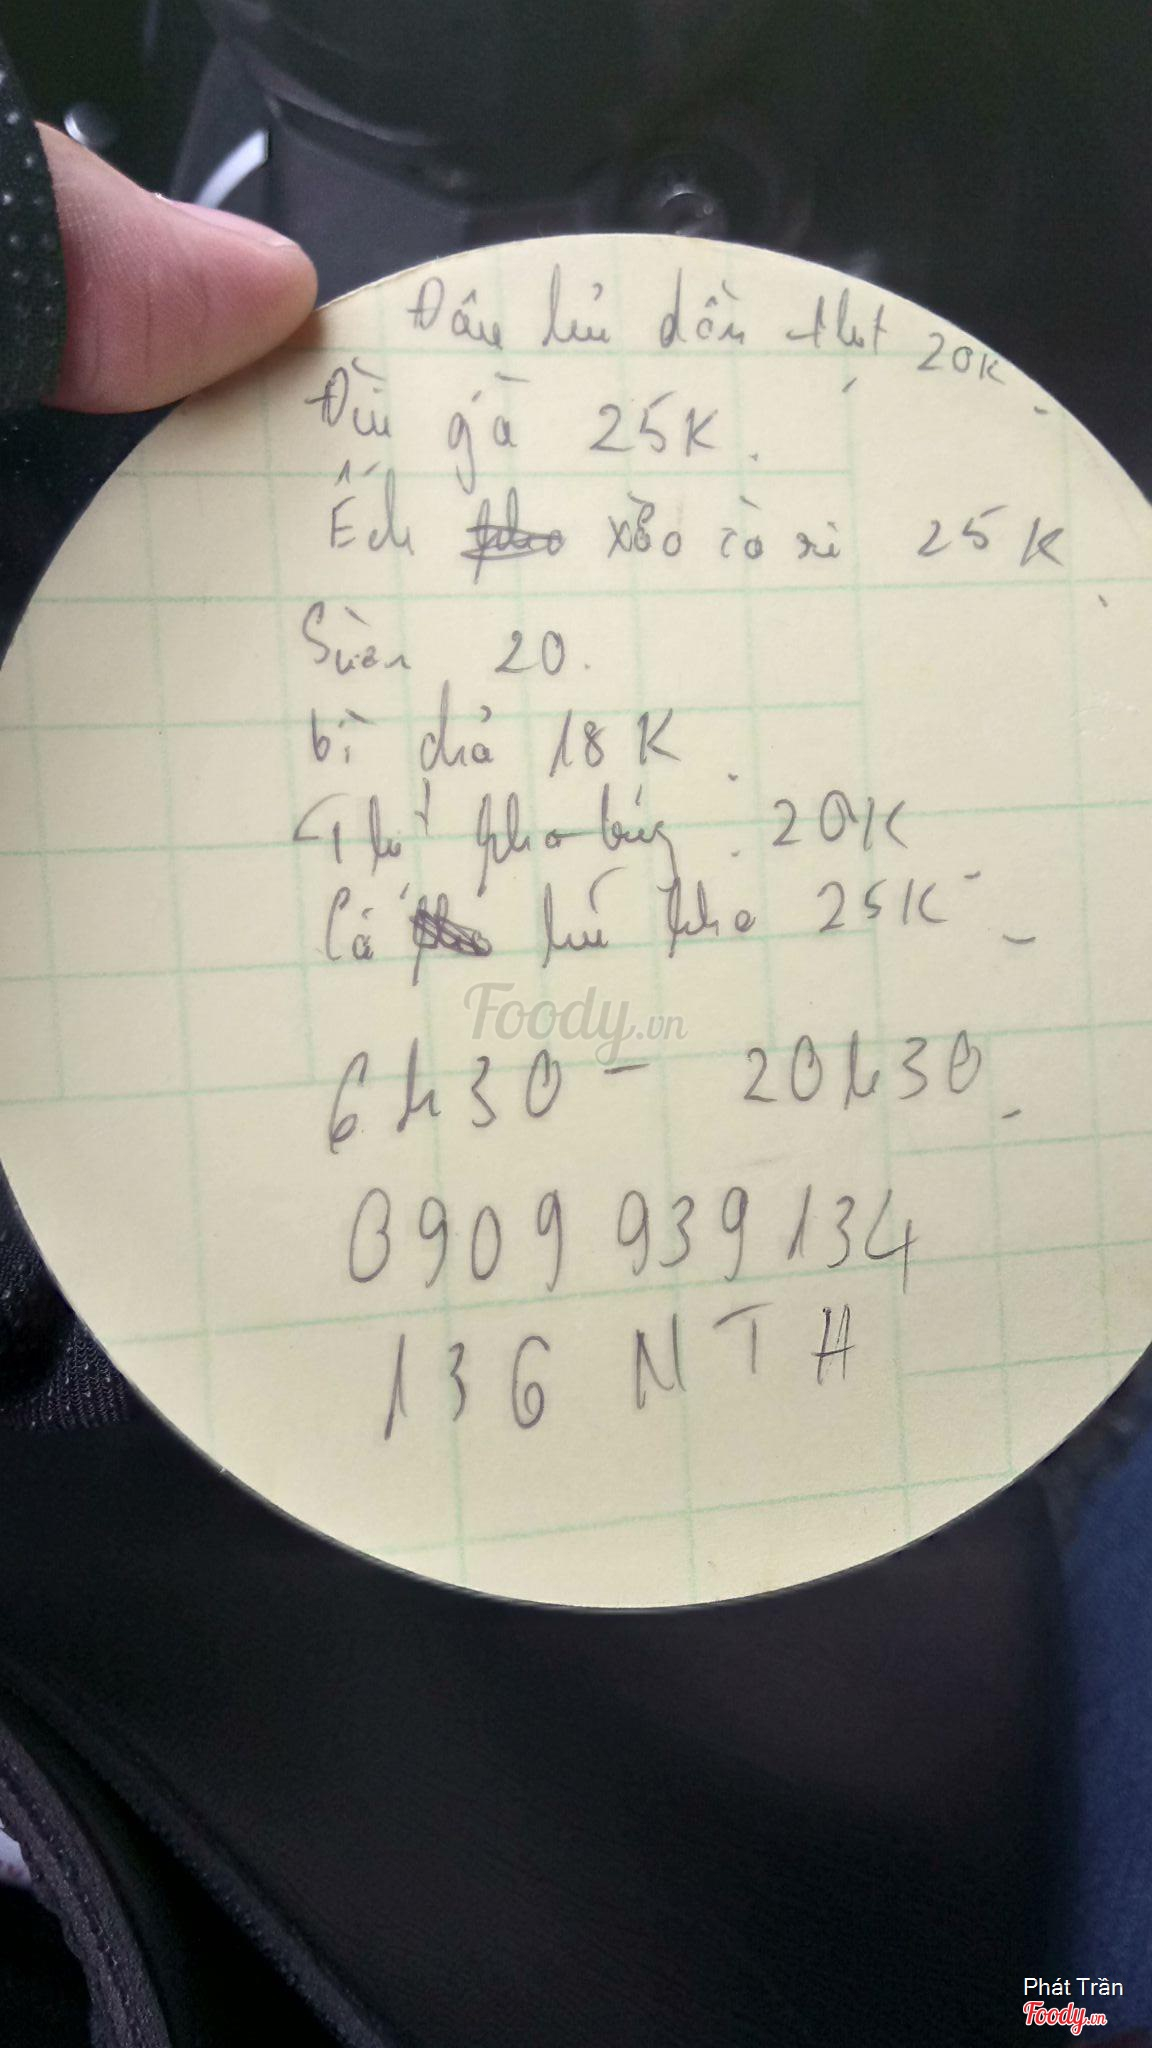 Đậu hủ dồn thịt 20K
Đùi gà 25K.
Ếch xào cà ri 25K
Sườn 20.
bì chả 18K
Thịt kho trứng: 20K
Cá hú kho 25K
6h30 - 20h30
0909 939 134
136 NTH
Foody.vn
Phát Trần
Foody.vn